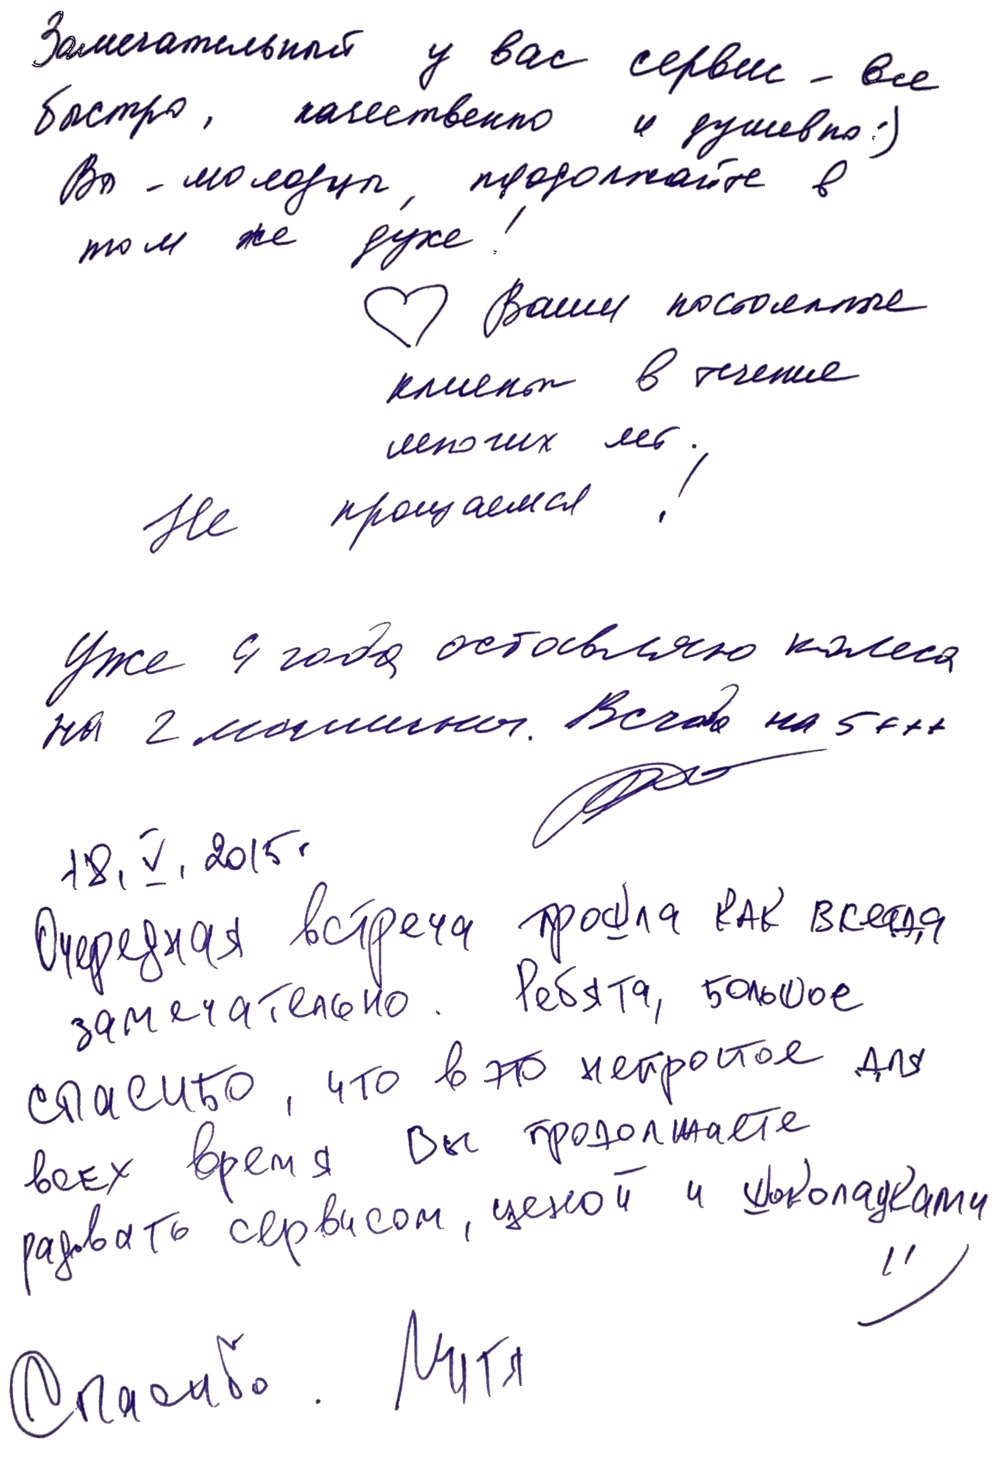 Замечательный у вас сервис – все
быстро, качественно и душевно :)
Вы – молодцы, продолжайте в
том же духе!
Ваши постоянные
клиенты в течение
многих лет.
Не прощаемся!
Уже 4 года оставляю колеса
на 2 машины. Всегда на 5+++
18. V. 2015г.
Очередная встреча прошла как всегда
замечательно. Ребята, большое
спасибо, что в это непростое для
всех время вы продолжаете
радовать сервисом, ценой и шоколадками
Спасибо. Митя